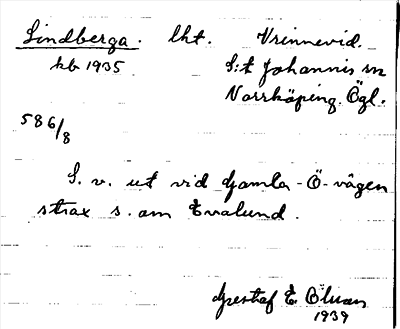 Lindberga. lht. Vrinnevid.
kb 1935 S:t Johannis sn
Norrköping. Ögl.
586/8
S. v. ut vid Gamla-Ö-vägen
strax s. om Evalund.
Gustaf E. Öman
1939